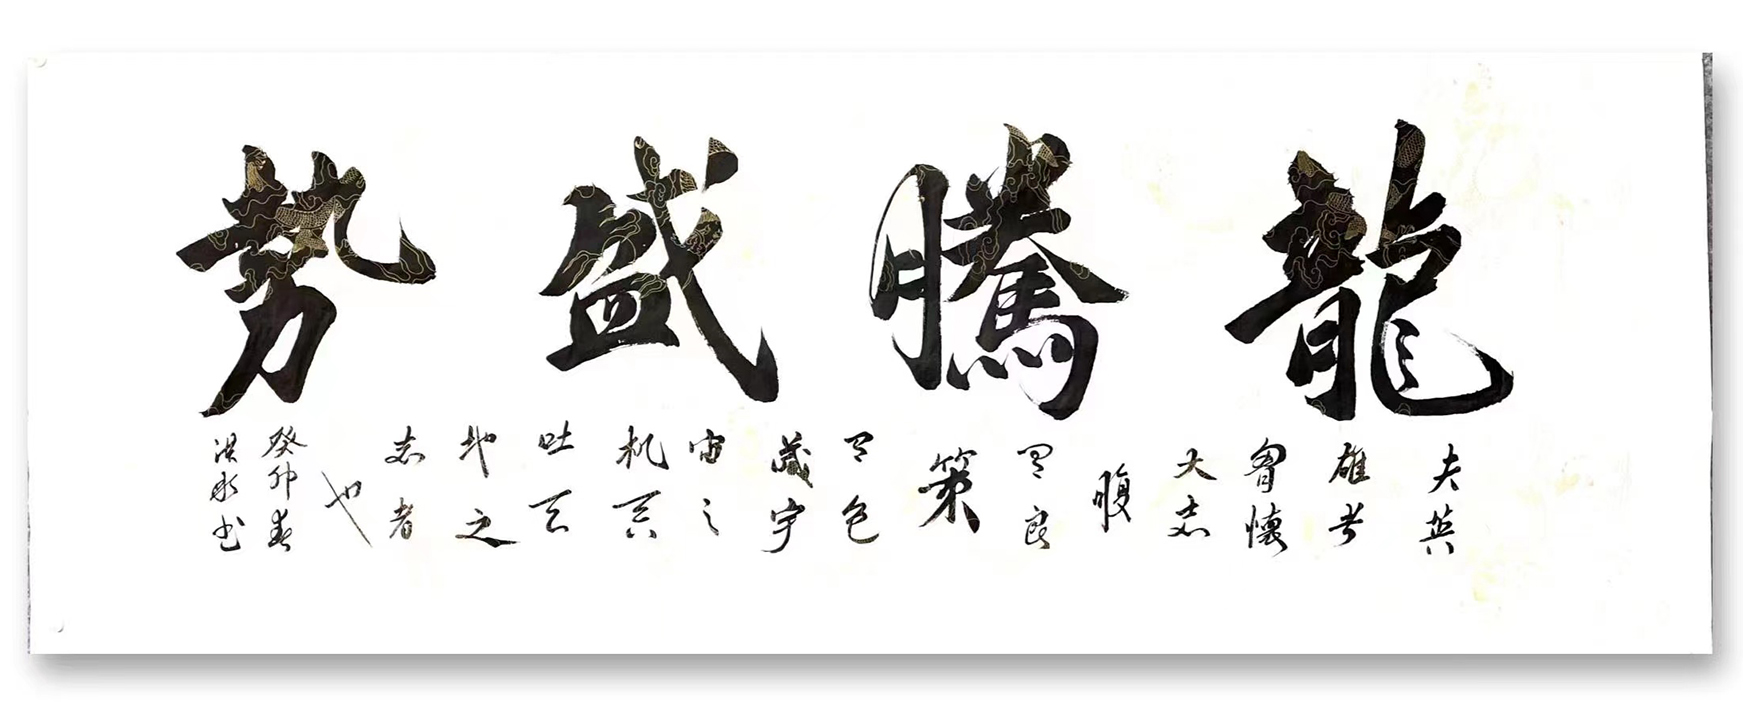 龍騰盛勢
夫英
雄者
胷懷
大志
腹
有良
策
有包
藏宇
宙之
机吞
吐天
地之
志者
也
癸卯春
洪书